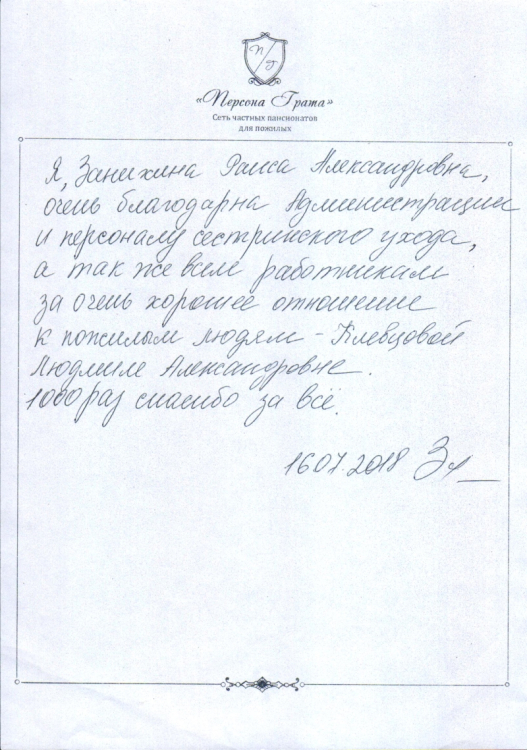 П/Г
«Персона Грата»
Сеть частных пансионатов
для пожилых
Я, Занихина Раиса Александровна,
очень благодарна Администрации
и персоналу сестринского ухода,
а так же всем работникам
за очень хорошее отношение
к пожилым людям – Плевцовой
Людмиле Александровне.
1000 раз спасибо за всё.
16.07.2018